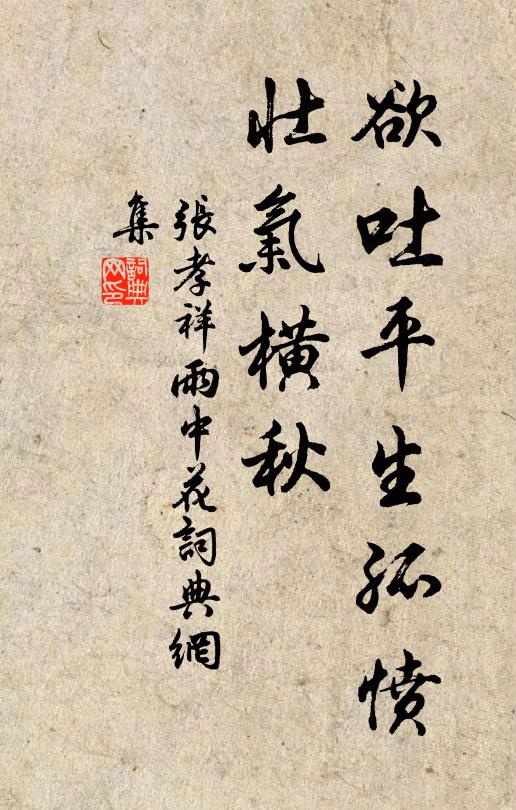 欲吐平生孤憤
壯氣橫秋
張孝祥雨中花詞典網
集
詞典
网印